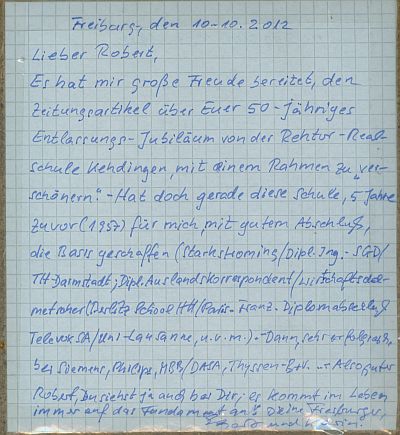 Freiburg, den 10-10. 2012
Lieber Robert,
Es hat mir große Freude bereitet, den
Zeitungsartikel über Euer 50-Jähriges
Entlassungs-Jubiläum von der Rektor-Real
schule Kehdingen, mit einem Rahmen zu "ver-
schönern" - Hat doch gerade diese Schule, 5 Jahre
zuvor (1957) für mich, mit gutem Abschluß,
die Basis geschaffen (Starkstroming/Dipl. Ing. - SGD/
TH-Darmstadt; Dipl. Auslandskorrespondent/Wirtschaftsdol-
metscher (Berlitz School HH/Paris-Franz. Diplomabschluß
Televox SA/Uni-Lausanne, u.v.m.). - Dann, sehr erfolgreich,
bei Siemens, Philips, MBB/DASA, Thyssen-B+V. - Also guter
Robert, Du siehst ja auch bei Dir; es kommt im Leben
immer auf das Fundament an! Deine Freiburger,
und